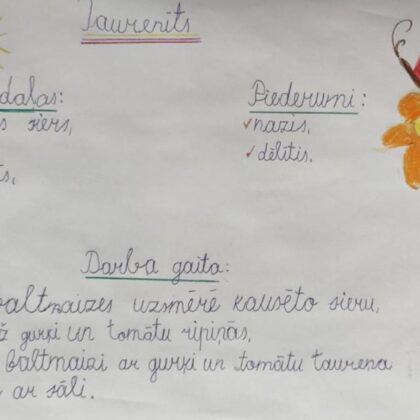 Taurenīts
dalas:
Piederumi:
siers,
nazis,
dēlītis.
Darba gaita:
baltmaizes uzsmērē kausēto sieru,
gurķi un tomātu ripiņās,
baltmaizi ar gurķi un tomātu taureņa
ar sāli.